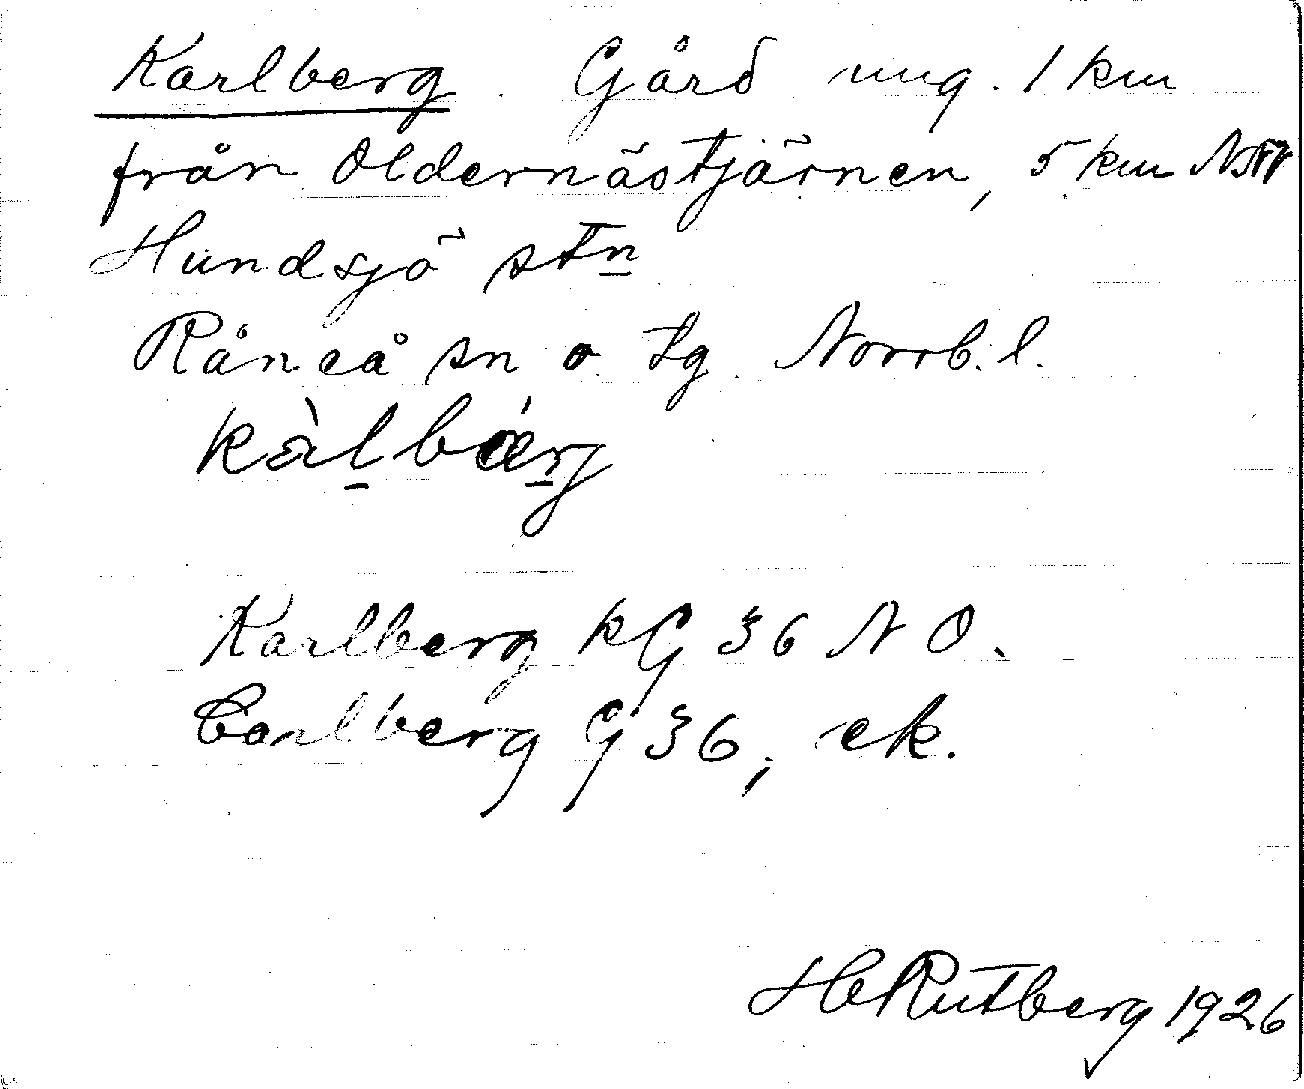 Karlberg. Gård ung. 1 km
från Oldernästjärnen, 5 km
Hundsjö stn
Råneå sn o. tg. Norrb. l.
kàlbárg
Karlberg kG 36 NO.
Carlberg G 36, ek.
HRutberg 1926